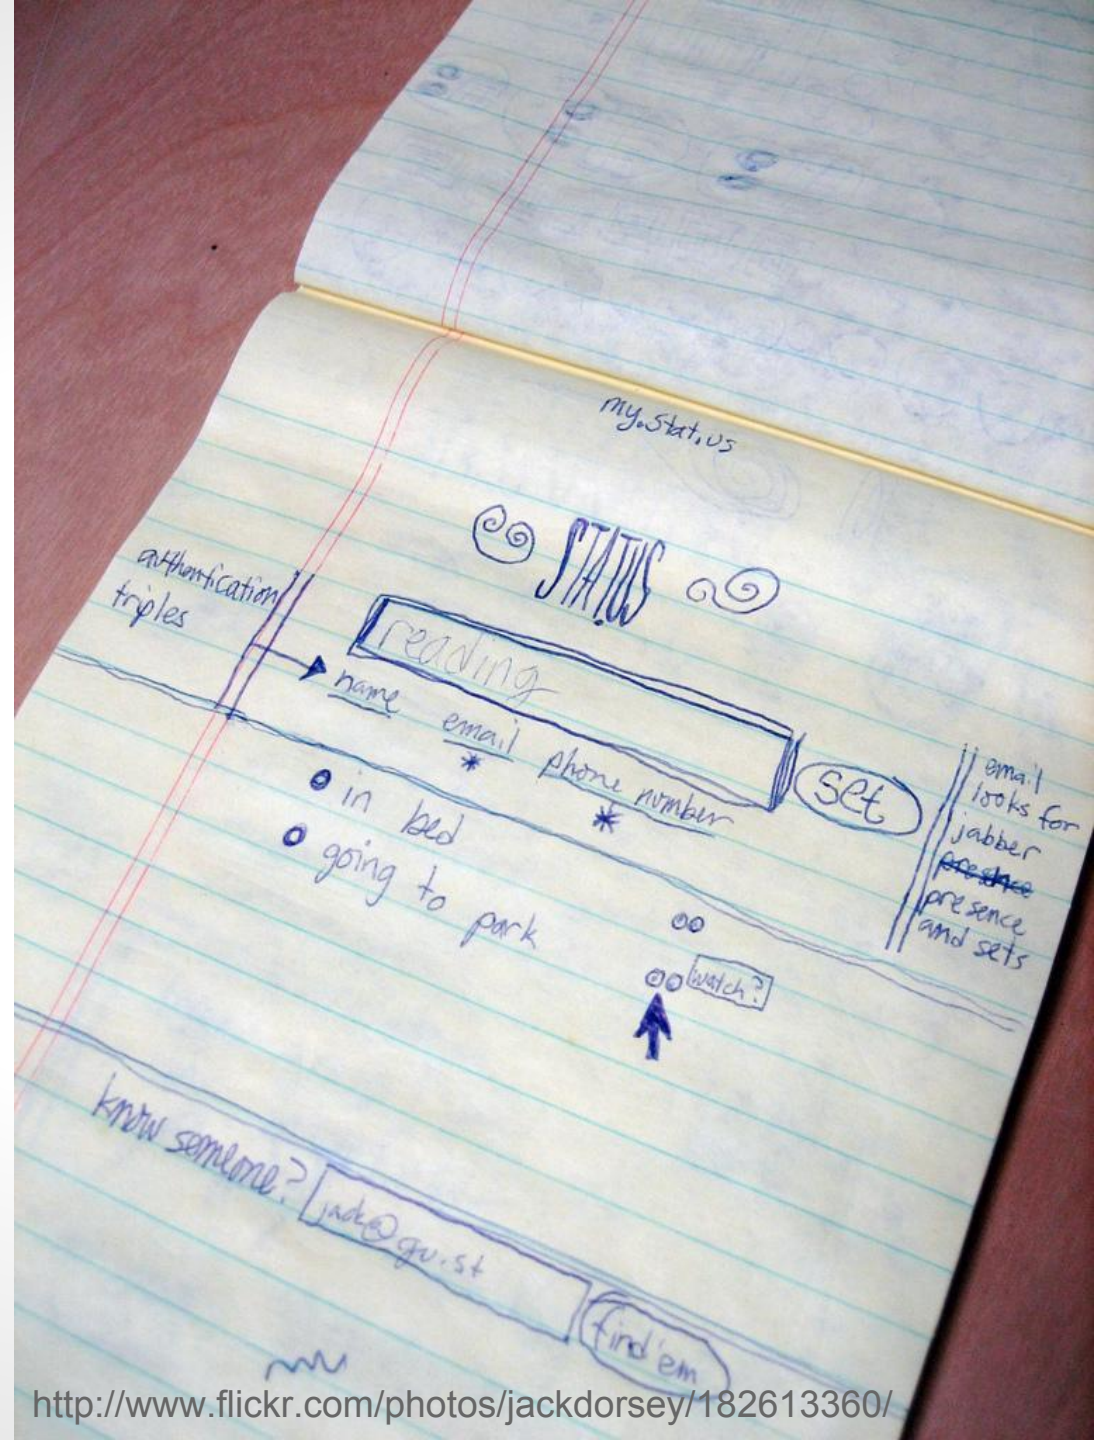 my.stat.us
STAT.US
authentication
triples
reading
name email phone number
* *
set
in bed
going to park
email
looks for
jabber
presence
presence
and sets
watch?
know someone?
jack@gu.st
find'em
http://www.flickr.com/photos/jackdorsey/182613360/